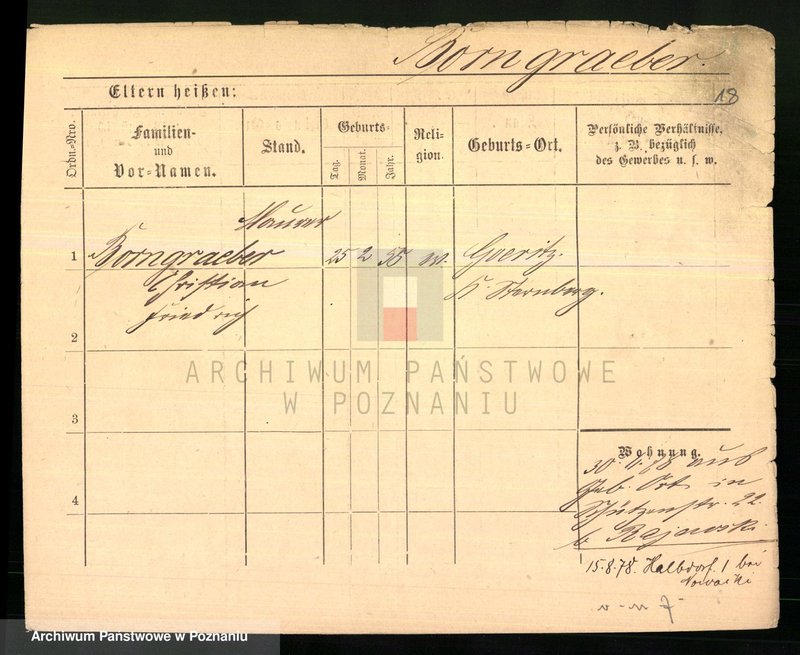 Borngraeber.
18
Eltern heißen:
Ordn.-Nro.
Familien-
und
Vor-Namen.
Stand.
Geburts-
Tag.
Monat.
Jahr.
Reli-
gion.
Geburts-Ort.
Persönliche Verhältnisse,
z. B. bezüglich
des Gewerbes u. s. w.
Maurer
1 Borngraeber 25 2 55 Goeritz.
Christian Kr. Sternberg.
Friedrich
2
ARCHIWUM PAŃSTWOWE
W POZNANIU
3
Wohnung.
78 aus
Geb. Ort in
4
Schützenstr. 22
b. Rejewski.
15.8.78. Halbdorf. 1 bei
Nowacki
Archiwum Państwowe w Poznaniu